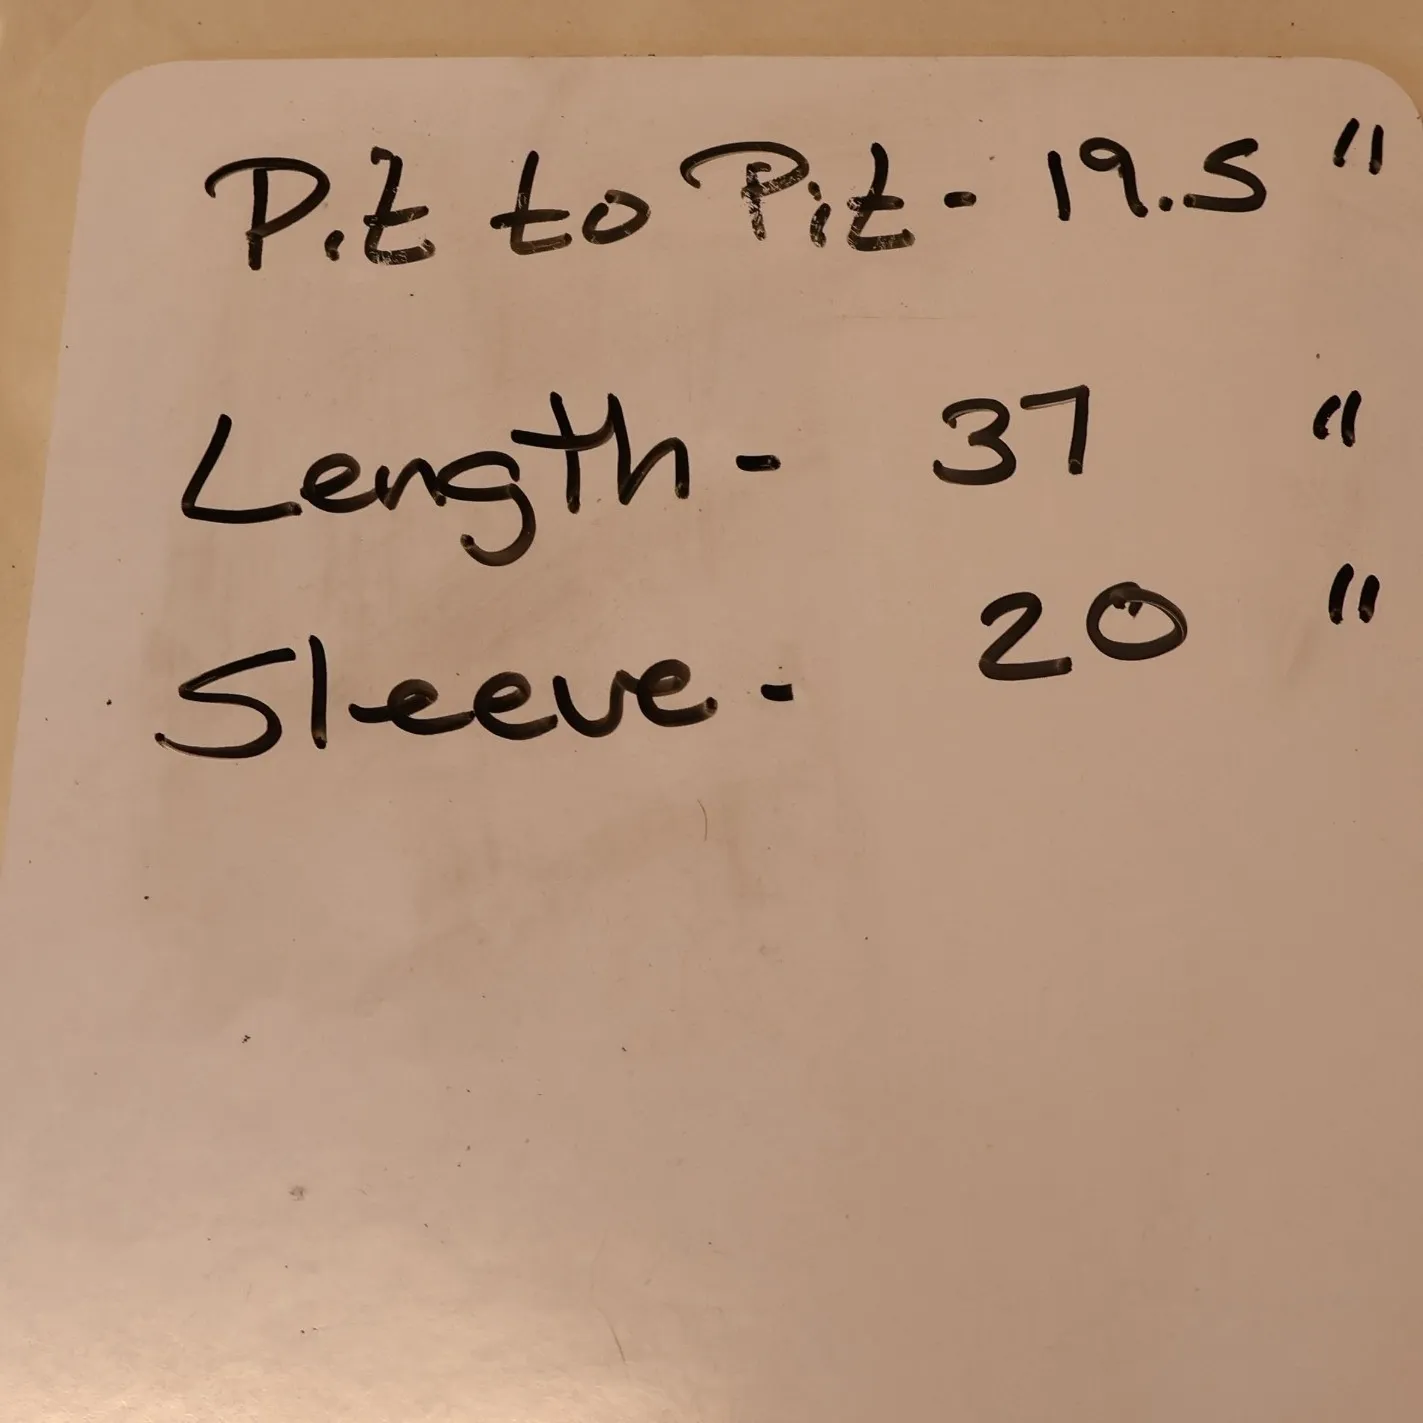 Pit to Pit - 19.5 "
Length - 37 "
Sleeve - 20 "